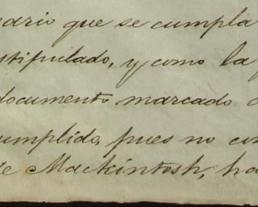 nario que se cumpla
stipulado, y como la
documento marcado
cumplido, pues no con
de Mackintosh, ha